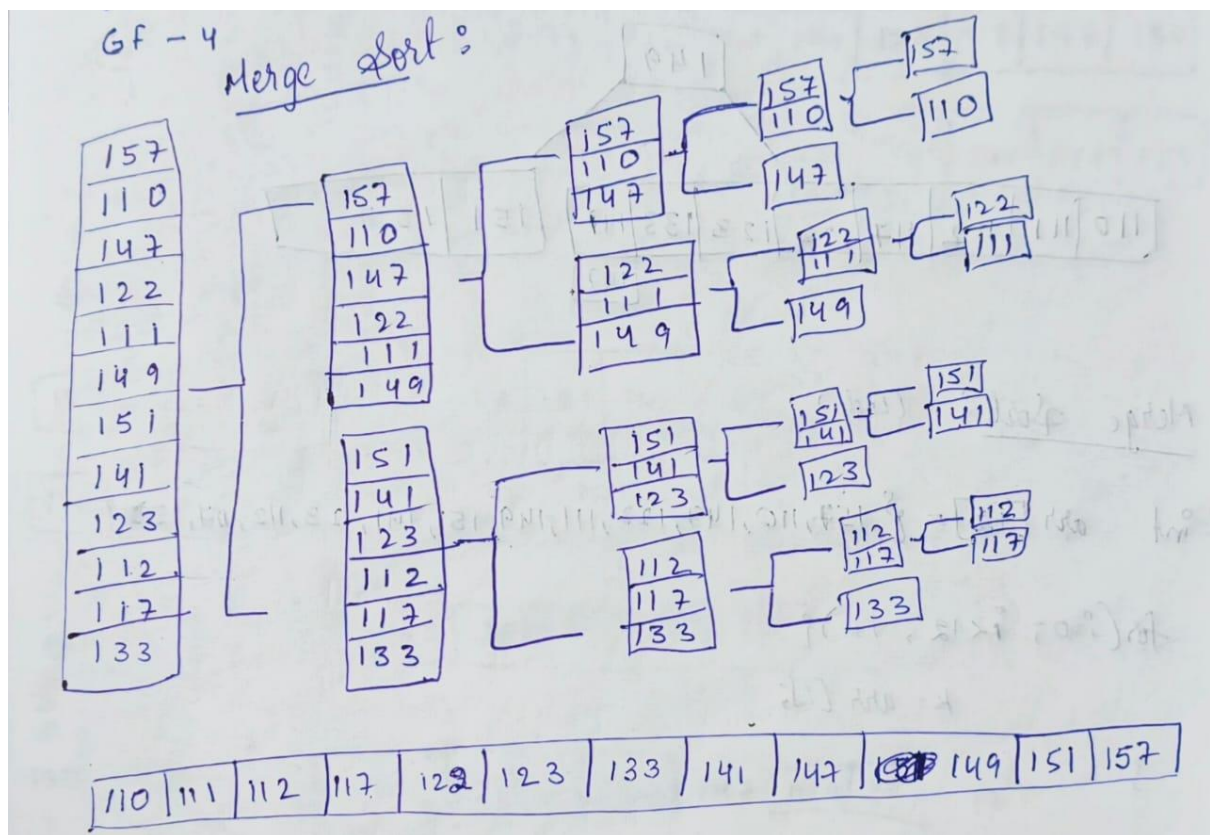 Gf - 4
Merge Sort:
157
110
147
122
111
149
151
141
123
112
117
133
157
110
147
122
111
149
151
141
123
112
117
133
157
110
147
122
111
149
151
141
123
112
117
133
157
110
147
122
111
149
151
141
123
112
117
133
157
110
122
111
151
141
112
117
110 111 112 117 122 123 133 141 147 149 151 157